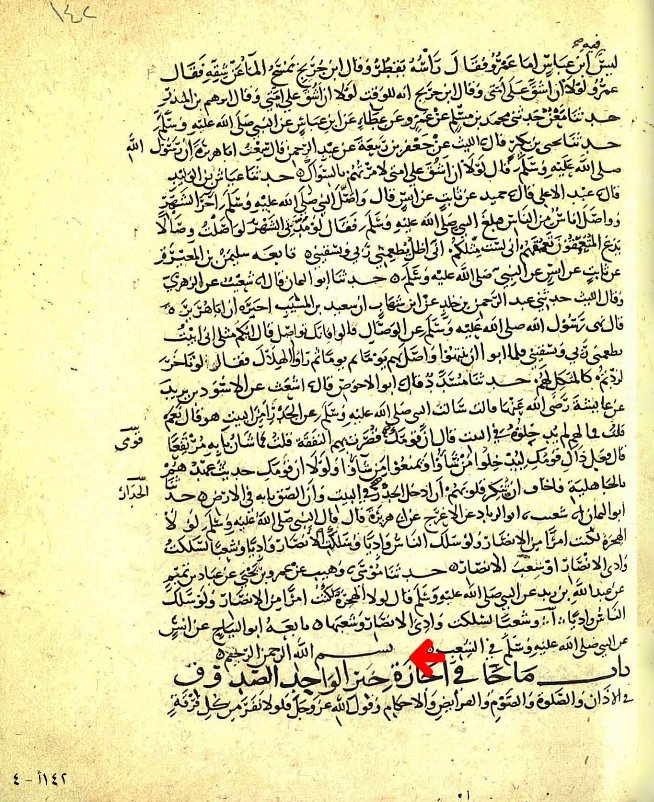 ١٤٢
فيه
ليس ابن عباس اما عمرو فقال رأسه يقطر وقال ابن جريج يمسح الماء عن شقه فقال
عمرو لولا ان اشق على امتي وقال ابن جريج انه للوقت لولا ان اشق على امتي وقال ابرهيم بن المنذر
حدثنا معن حدثني محمد بن مسلم عن عمرو عن عطاء عن ابن عباس عن النبي صلى الله عليه وسلم
حدثنا يحيى بن بكير قال الليث عن جعفر بن ربيعة عن عبد الرحمن قال سمعت ابا هريرة ان رسول الله
صلى الله عليه وسلم قال لولا ان اشق على امتي لامرتهم بالسواك حدثنا عياش بن الوليد
قال عبد الاعلى قال حميد عن ثابت عن انس قال واصل النبي صلى الله عليه وسلم اخر الشهر
وواصل اناس من الناس فبلغ النبي صلى الله عليه وسلم فقال لو مد بي الشهر لواصلت وصالا
يدع المتعمقون تعمقهم اني لست مثلكم اني اظل يطعمني ربي ويسقيني تابعه سليمن بن المغيرة
عن ثابت عن انس عن النبي صلى الله عليه وسلم حدثنا ابو اليمان قال شعيب عن الزهري
وقال الليث حدثني عبد الرحمن بن خلد عن ابن شهاب ان سعيد بن المسيب اخبره ان ابا هريرة
قال نهى رسول الله صلى الله عليه وسلم عن الوصال قالوا فانك تواصل قال ايكم مثلي اني ابيت
يطعمني ربي ويسقيني فلما ابوا ان ينتهوا واصل بهم يوما ثم يوما ثم راوا الهلال فقال لو تاخر
لزدتكم كالمنكل لهم حدثنا مسدد قال ابو الاحوص قال اشعث عن الاسود بن يزيد
عن عايشة رضي الله عنها قالت سالت النبي صلى الله عليه وسلم عن الجدر امن البيت هو قال نعم
قلت فما لهم لم يدخلوه في البيت قال ان قومك قصرت بهم النفقة قلت فما شان بابه مرتفعا
قال فعل ذاك قومك ليدخلوا من شاؤا ويمنعوا من شاؤا ولولا ان قومك حديث عهدهم
بالجاهلية فاخاف ان تنكر قلوبهم ان ادخل الجدر في البيت وان الصق بابه في الارض حدثنا
ابو اليمان شعيب ابو الزناد عن الاعرج عن ابي هريرة قال قال النبي صلى الله عليه وسلم لولا
الهجرة لكنت امرأ من الانصار ولو سلك الناس واديا وسلكت الانصار واديا وشعبا لسلكت
وادي الانصار او شعب الانصار حدثنا موسى وهيب عن عمرو بن يحيى عن عباد بن تميم
عن عبد الله بن زيد عن النبي صلى الله عليه وسلم قال لولا الهجرة لكنت امرأ من الانصار ولو سلك
الناس واديا او شعبا لسلكت وادي الانصار وشعبها تابعه ابو التياح عن انس
عن النبي صلى الله عليه وسلم في الشعب بسم الله الرحمن الرحيم
باب ما جا في اجازة خبر الواحد الصدوق في
في الاذان والصلوة والصوم والفرايض والاحكام وقول الله عز وجل فلولا نفر من كل فرقة
قومي
الجدار
١٤٢أ - ٤